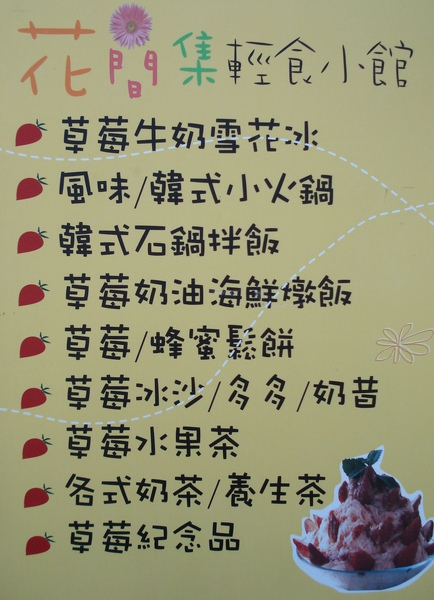 花間集輕食小館
草莓牛奶雪花冰
風味/韓式小火鍋
韓式石鍋拌飯
草莓奶油海鮮燉飯
草莓/蜂蜜鬆餅
草莓冰沙/多多/奶昔
草莓水果茶
各式奶茶/養生茶
草莓紀念品